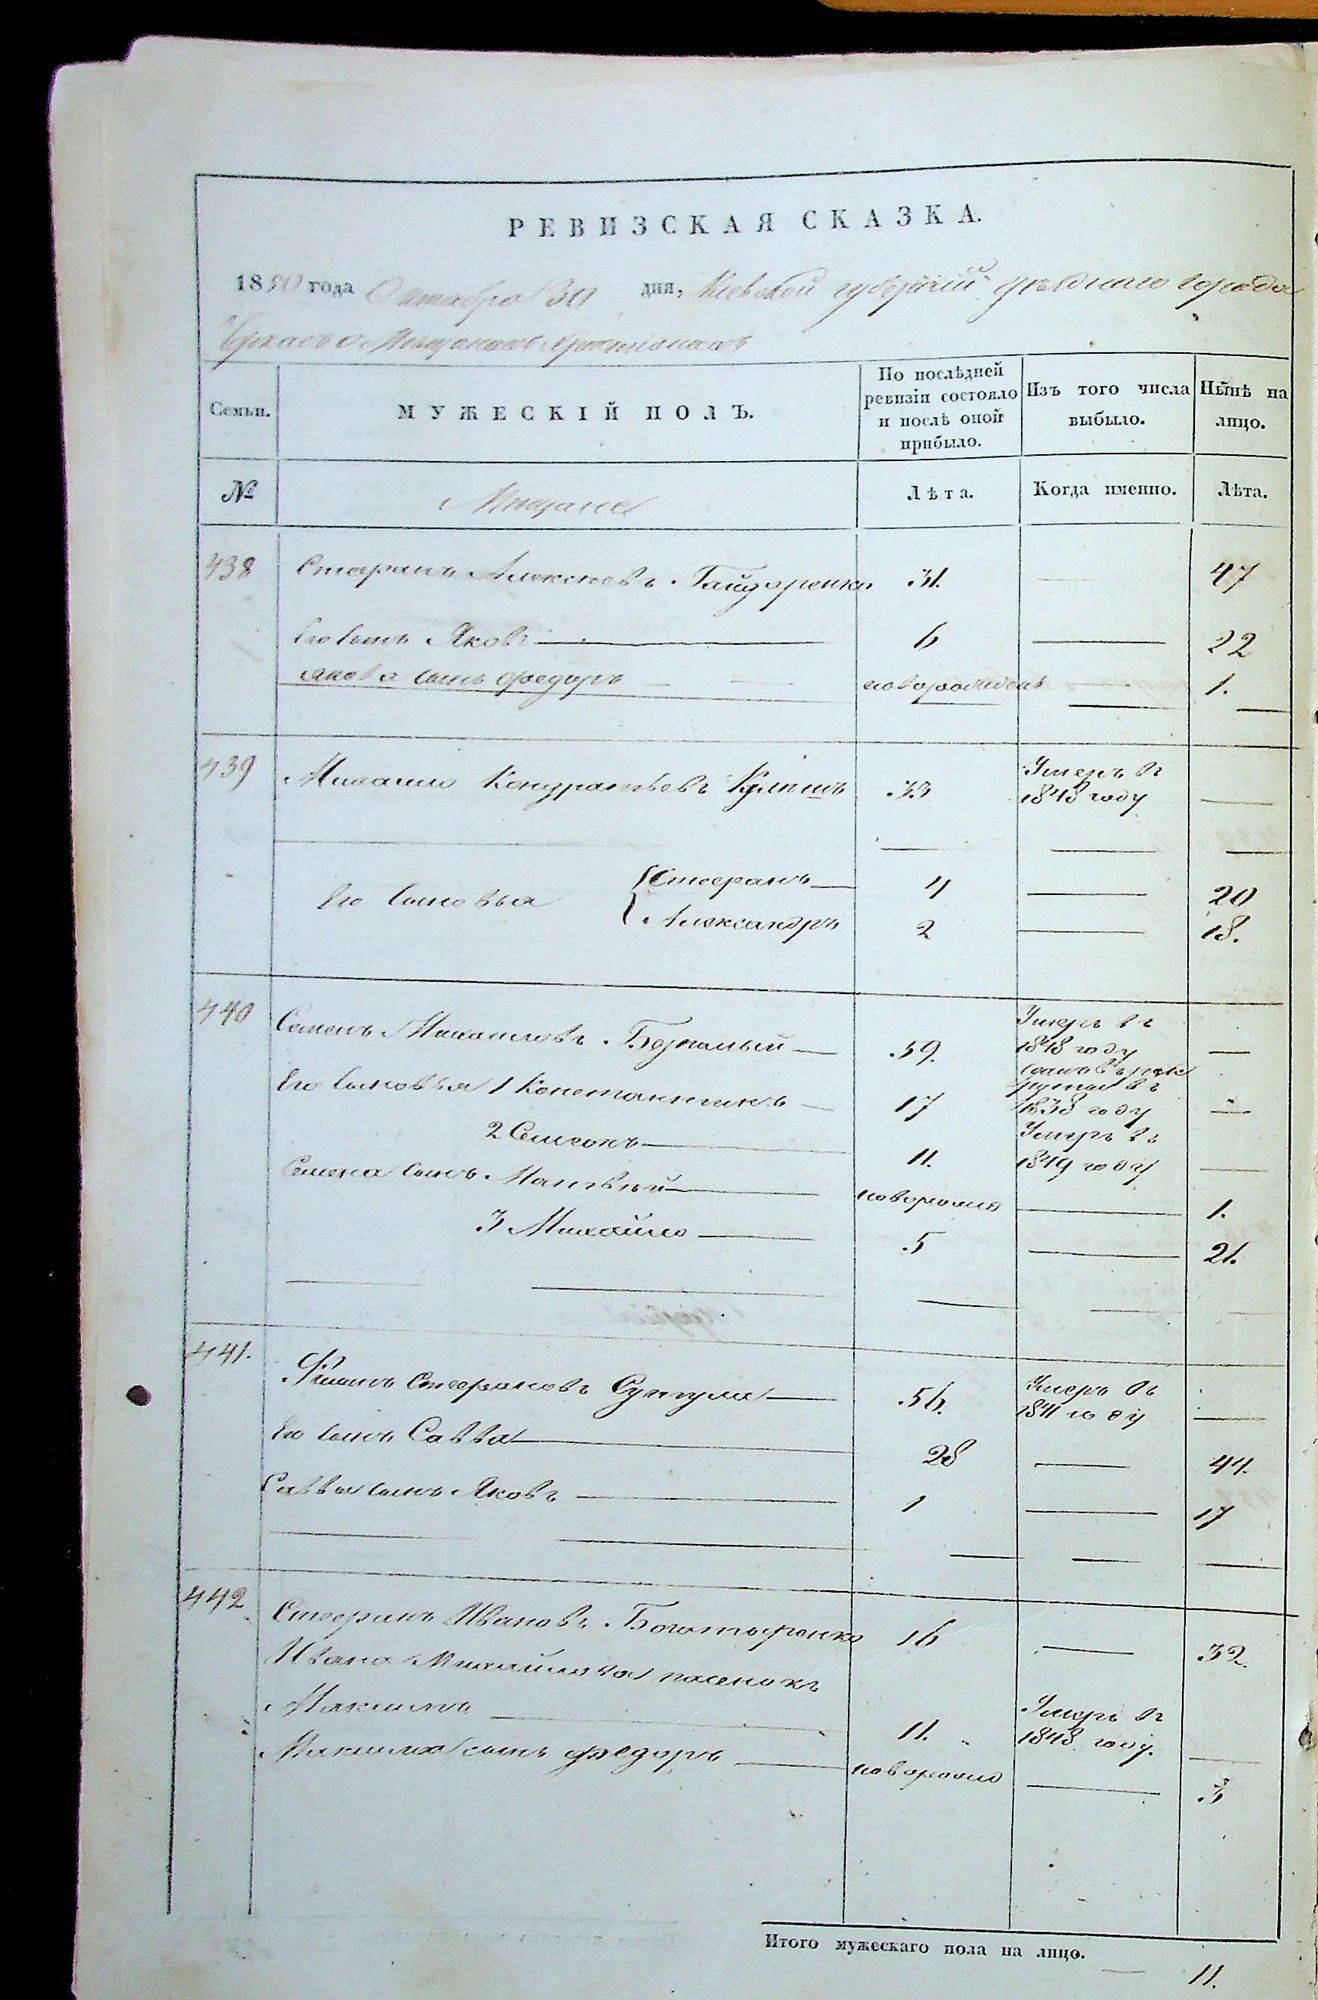 РЕВИЗСКАЯ СКАЗКА.
1850 года Октября 30 дня, Кіевской губерніи уѣзднаго города
Черкасъ о Мещанахъ христіанахъ
Семьи. МУЖЕСКІЙ ПОЛЪ. По послѣдней ревизіи состояло и послѣ оной прибыло. Изъ того числа выбыло. Нынѣ на лицо.
№ Мещане Лѣта. Когда именно. Лѣта.
438 Стефанъ Алексѣевъ Гайдоренко 31. 47
Его сынъ Яковъ 6 22
Якова сынъ Федоръ новорожденъ 1.
439 Михайло Кондратьевъ Кулишъ 33 Умеръ въ 1848 году
Его сыновья Стефанъ 4 20
Александръ 2 18.
440 Семенъ Михайловъ 59. Умеръ въ 1848 году
Его сыновья 1 Константинъ 17 въ 1838 году
2 Симеонъ 11. Умеръ въ 1849 году
Семена сынъ Матвѣй новорожд 1.
3 Михайло 5 21.
441. Стефановъ 56. Умеръ въ 1841 году
Его сынъ Савва 28 44.
Саввы сынъ Яковъ 1 17
442 Стефанъ Ивановъ Богатыренко 16 32
Ивана Михайлова пасенокъ
Максимъ 11. Умеръ въ 1848 году.
Максима сынъ Федоръ новорожд 3
Итого мужескаго пола на лицо. 11.